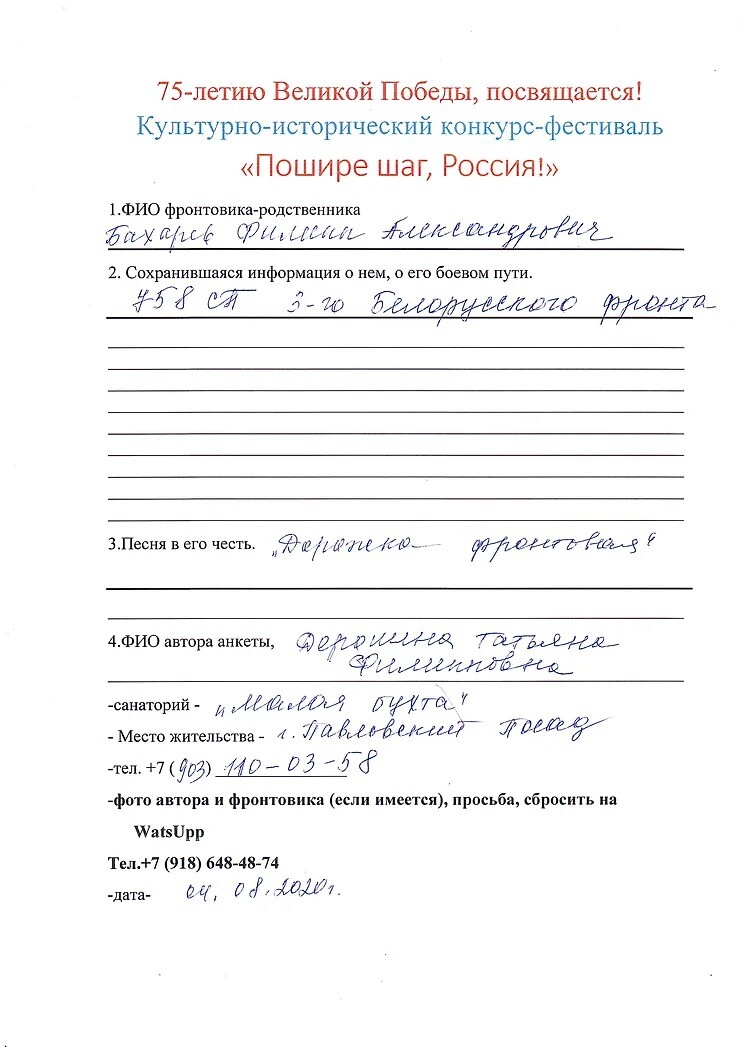 75-летию Великой Победы, посвящается!
Культурно-исторический конкурс-фестиваль
«Пошире шаг, Россия!»
1.ФИО фронтовика-родственника
Бахарев Филипп Александрович
2. Сохранившаяся информация о нем, о его боевом пути.
758 СП 3-го Белорусского фронта
3.Песня в его честь. „Дорожка фронтовая“
4.ФИО автора анкеты, Татьяна
Филипповна
-санаторий - „Малая бухта“
- Место жительства - г. Павловский Посад
-тел. +7 (903) 110-03-58
-фото автора и фронтовика (если имеется), просьба, сбросить на
WatsUpp
Тел.+7 (918) 648-48-74
-дата- 04. 08. 2020г.